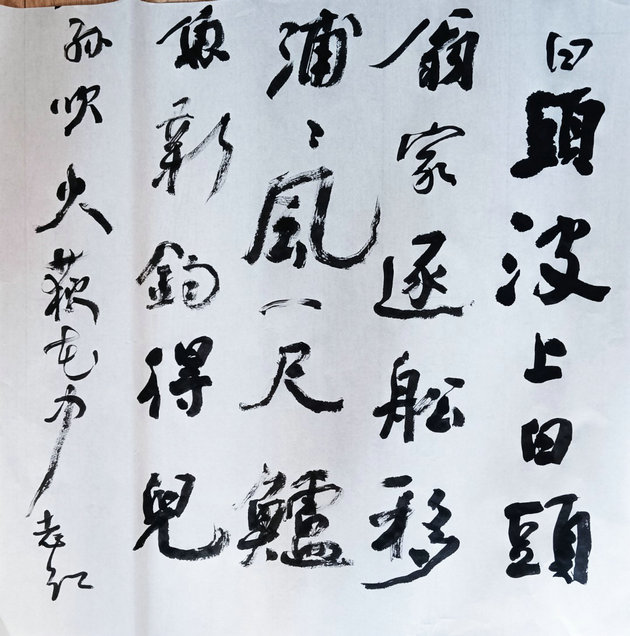 白頭波上白頭
翁家逐舩移
浦〻風一尺鱸
魚新釣得兒
孫吹火荻花中
老红